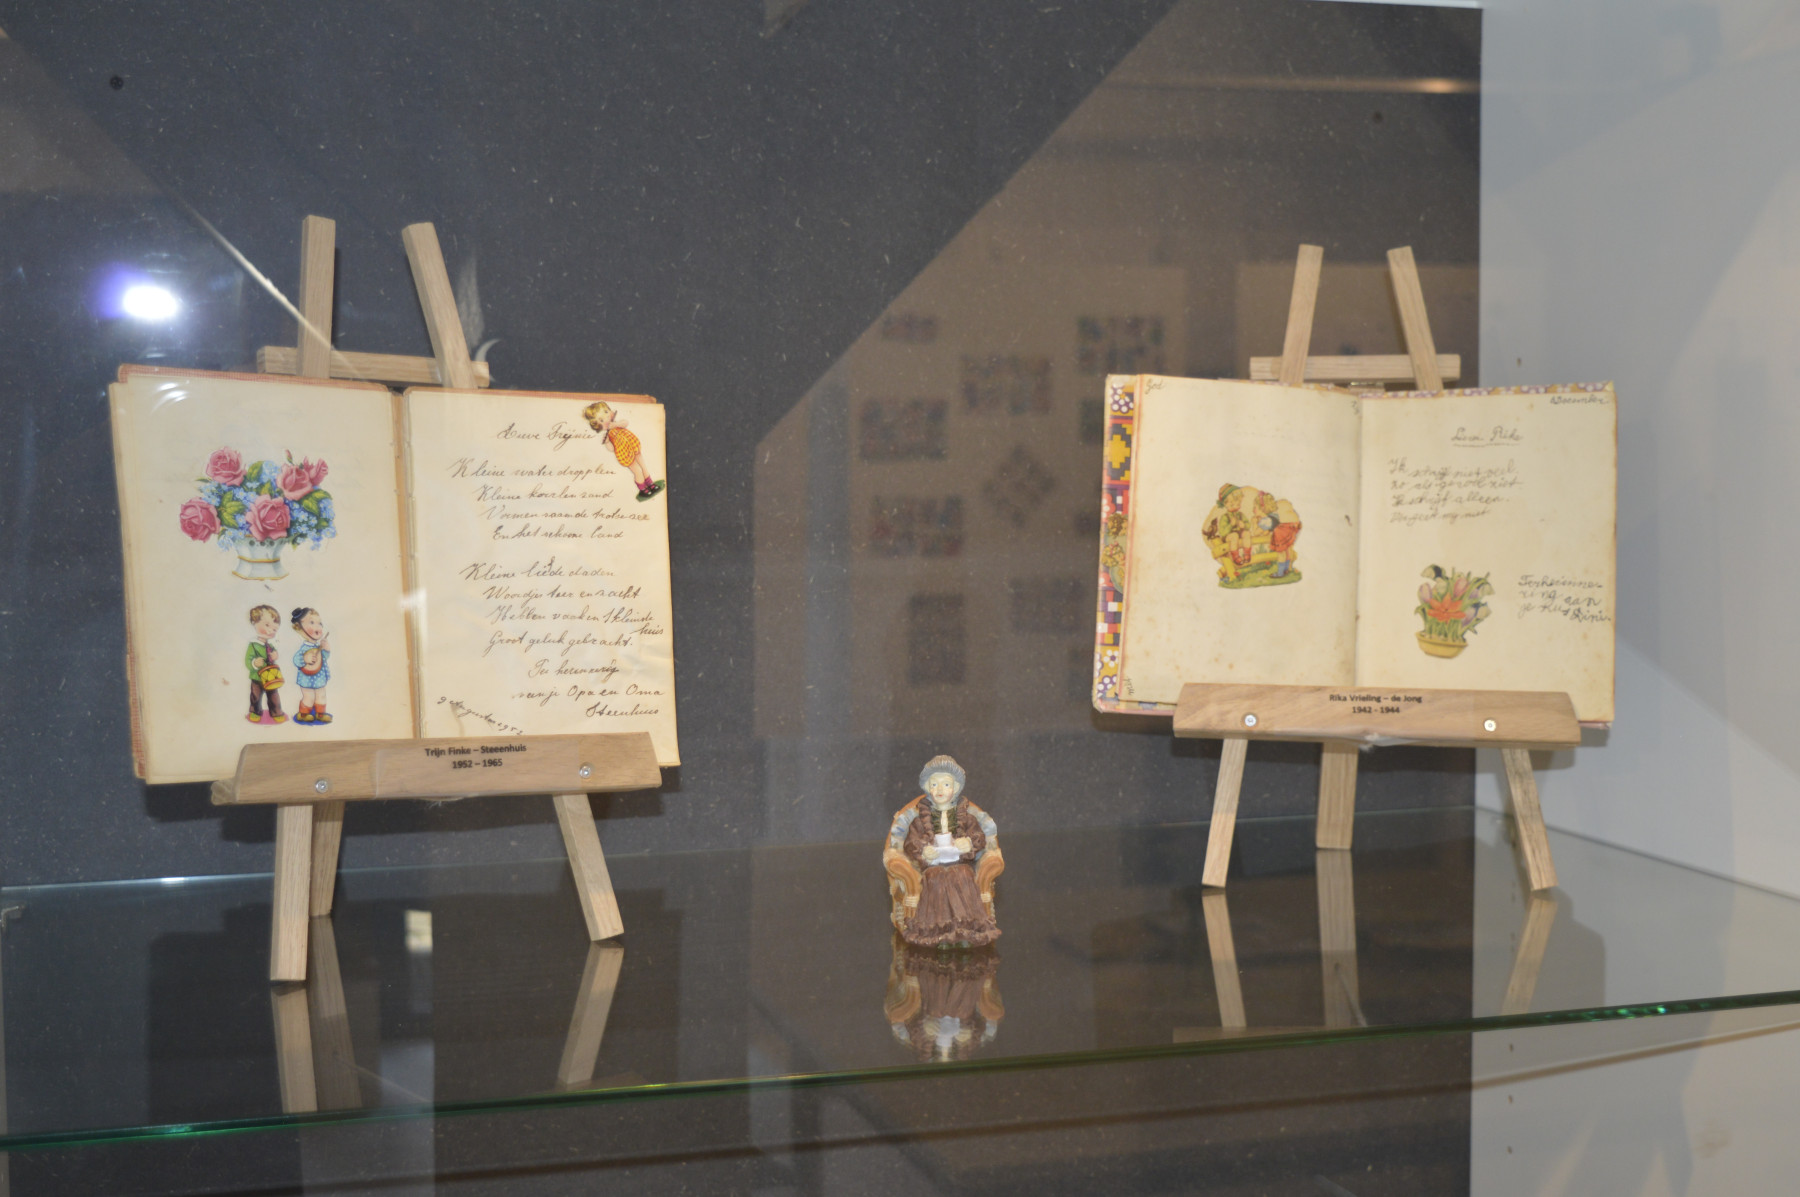 Lieve Trijnie
Kleine waterdropplen
Kleine korrlen zand
Vormen saam de trotse zee
En het schoone land
Kleine liefde daden
Woordjes teer en zacht
Hebben vaak en 't kleinste huis
Groot geluk gebracht.
Ter herinnering
van je Opa en Oma
Steenhuis
9 Augustus 1952
Trijn Finke – Steeenhuis
1952 – 1965
God
December
Lieve Rika
Ik schrijf niet veel.
Ik schrijf alleen.
Vergeet mij niet
Ter herinne-
ring aan
je Dini
Rika Vrieling – de Jong
1942 - 1944